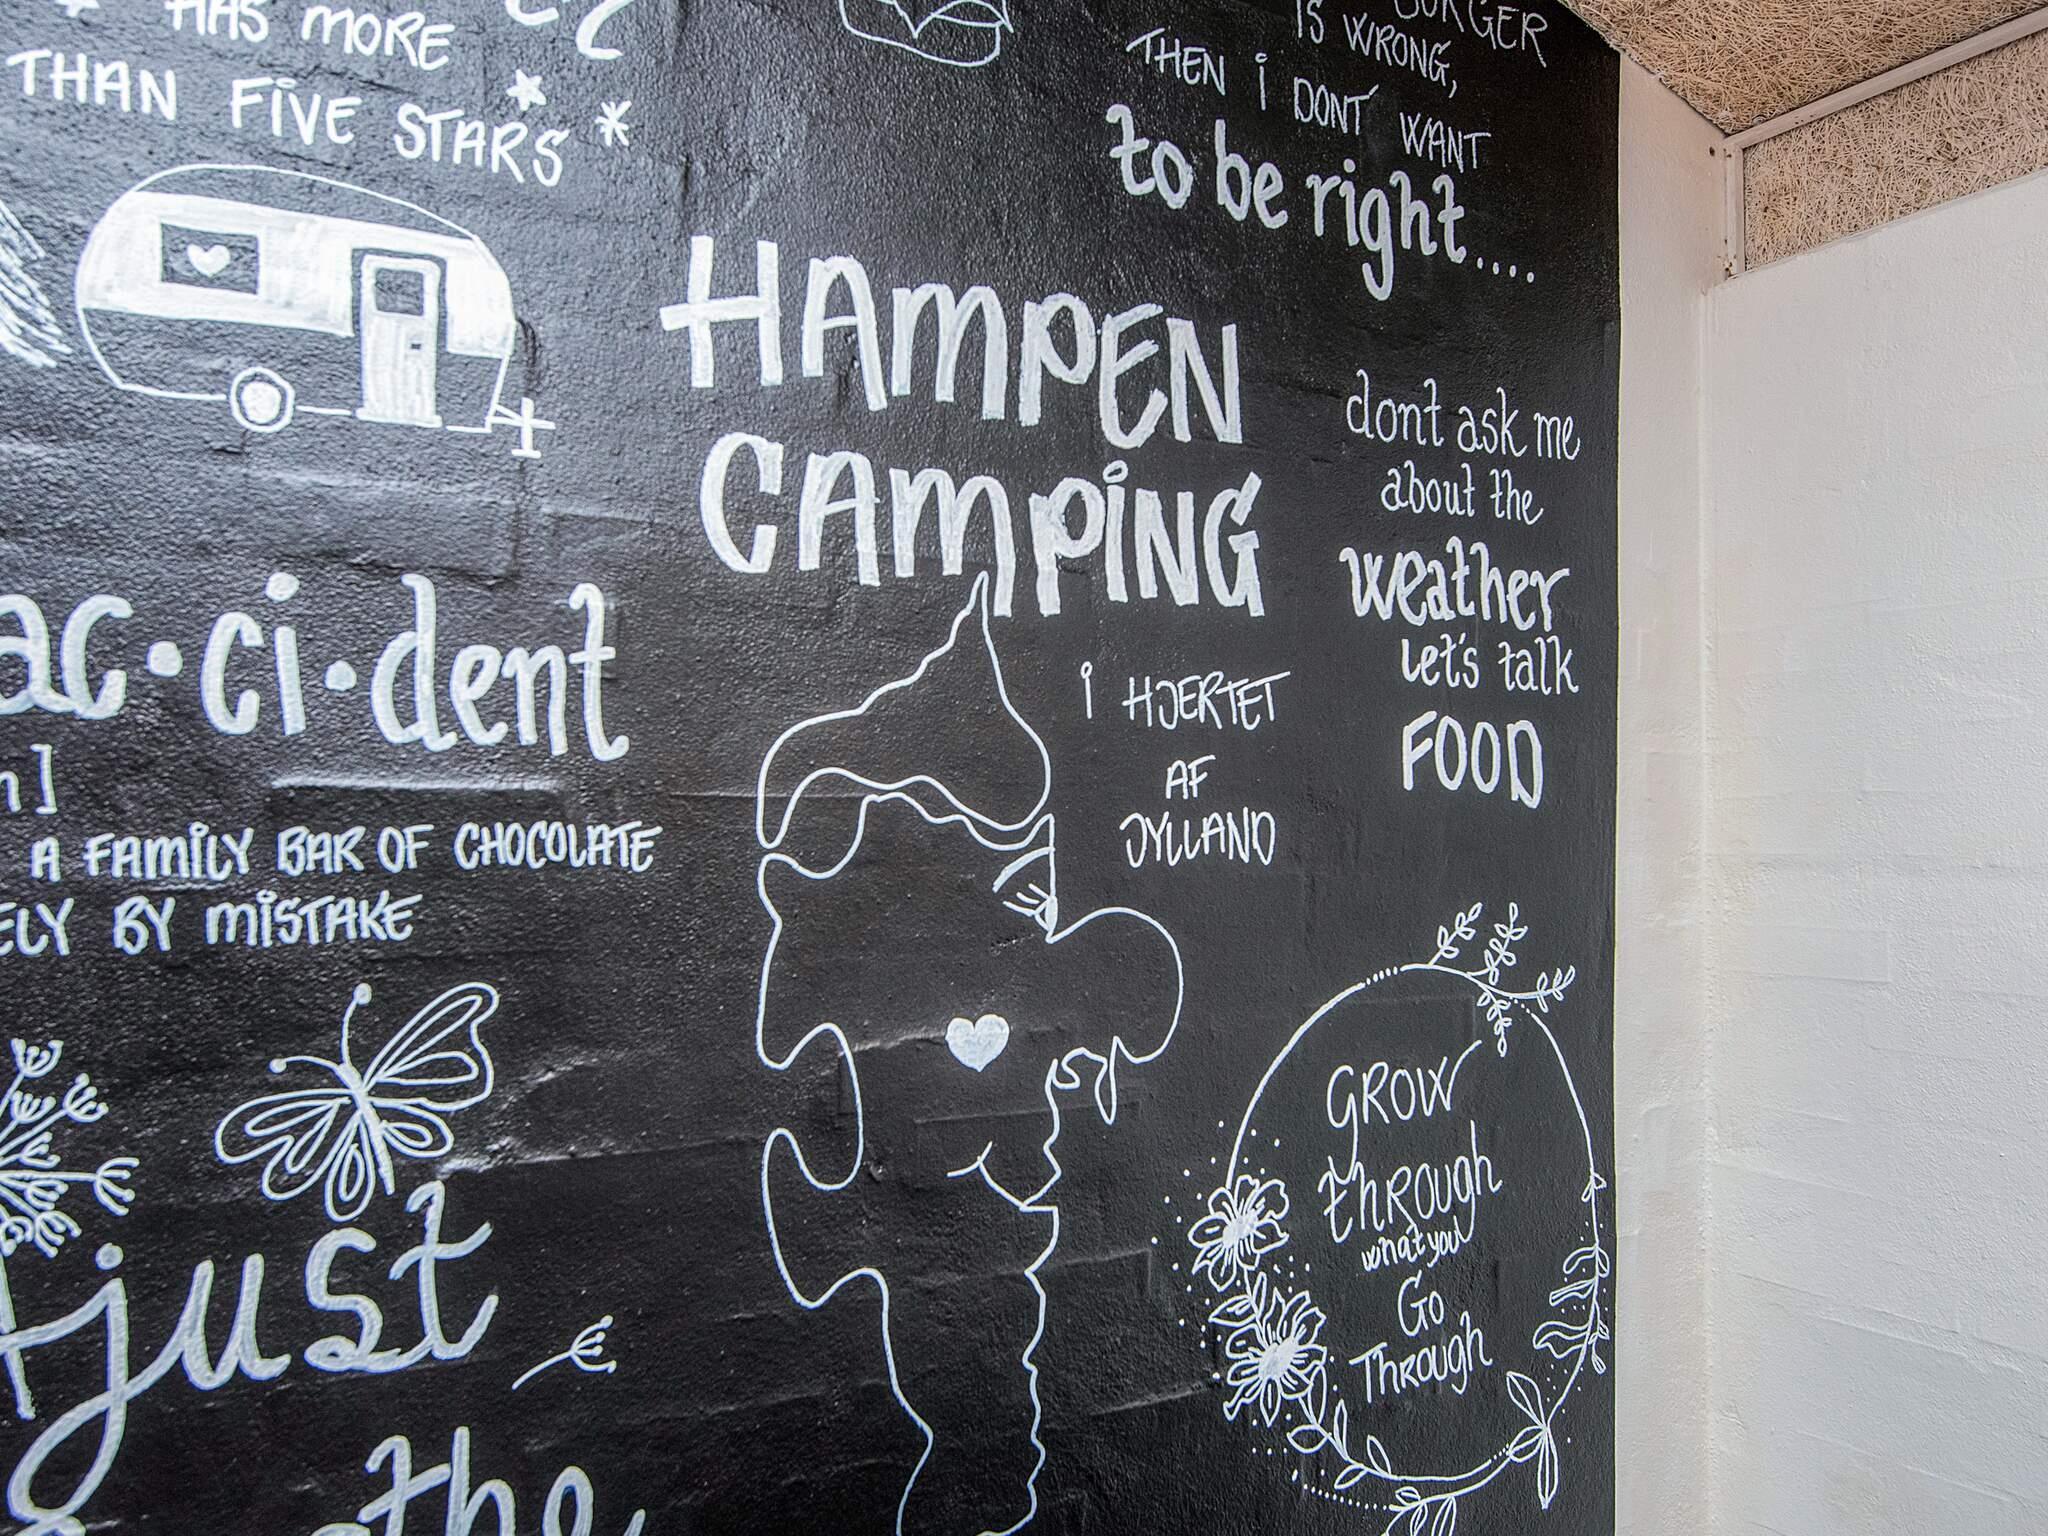 HAS MORE
THAN FIVE STARS
BURGER
IS WRONG,
THEN i DONT WANT
to be right....
HAMPEN
CAMPiNG
i HJERTET
AF
JYLLAND
dont ask me
about the
weather
Let's talk
FOOD
ac·ci·dent
A FAMiLY BAR OF CHOCOLATE
BY MiSTAKE
just
the
GROW
THROUGH
what you
GO
THROUGH